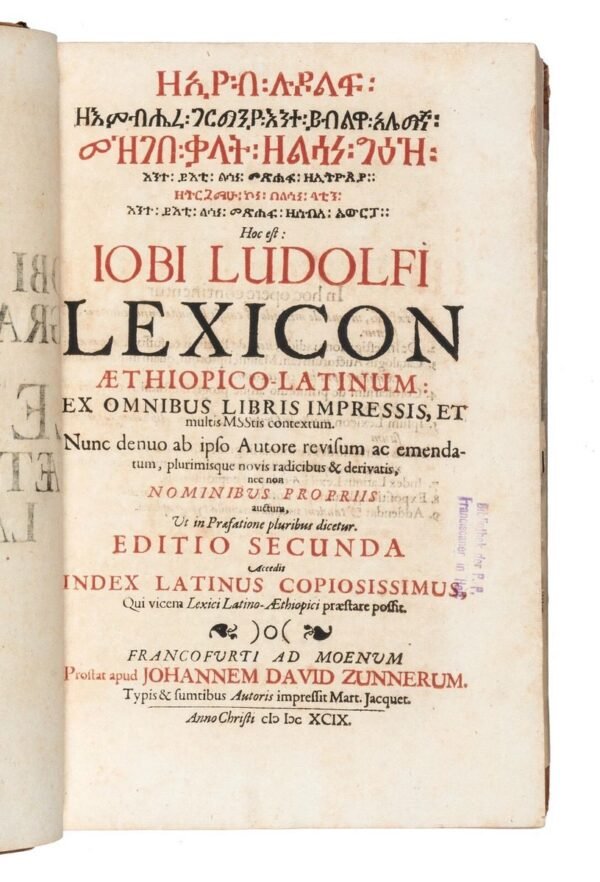 ዘኢዮብ፡ሉዶልፍ፡
ዘእምብሔረ፡ጀርማንያ፡እንተ፡ይብልዋ፡አሌማኝ፡
መዝገበ፡ቃላት፡ዘልሳነ፡ግዕዝ፡
እንተ፡ይእቲ፡ልሳነ፡መጽሐፍ፡ዘኢትዮጵያ፡፡
ዘትርጓሜሁ፡ኮነ፡በልሳነ፡ላቲን፡
እንተ፡ይእቲ፡ልሳነ፡መጽሐፍ፡ዘሰብአ፡አውሮፓ፡፡
Hoc est:
IOBI LUDOLFI
LEXICON
ÆTHIOPICO-LATINUM:
EX OMNIBUS LIBRIS IMPRESSIS, ET
multis MSStis contextum.
Nunc denuo ab ipſo Autore reviſum ac emenda-
tum, plurimisque novis radicibus & derivatis,
nec non
NOMINIBUS PROPRIIS
auctum,
Ut in Præfatione pluribus dicetur.
EDITIO SECUNDA
Accedit
INDEX LATINUS COPIOSISSIMUS,
Qui vicem Lexici Latino-Æthiopici præstare poſſit.
)o(
FRANCOFURTI AD MOENUM
Prostat apud JOHANNEM DAVID ZUNNERUM.
Typis & ſumtibus Autoris impreſſit Mart. Jacquet.
Anno Christi cIↄ Iↄc XCIX.
Bibliothek der P. P.
Franciscaner in